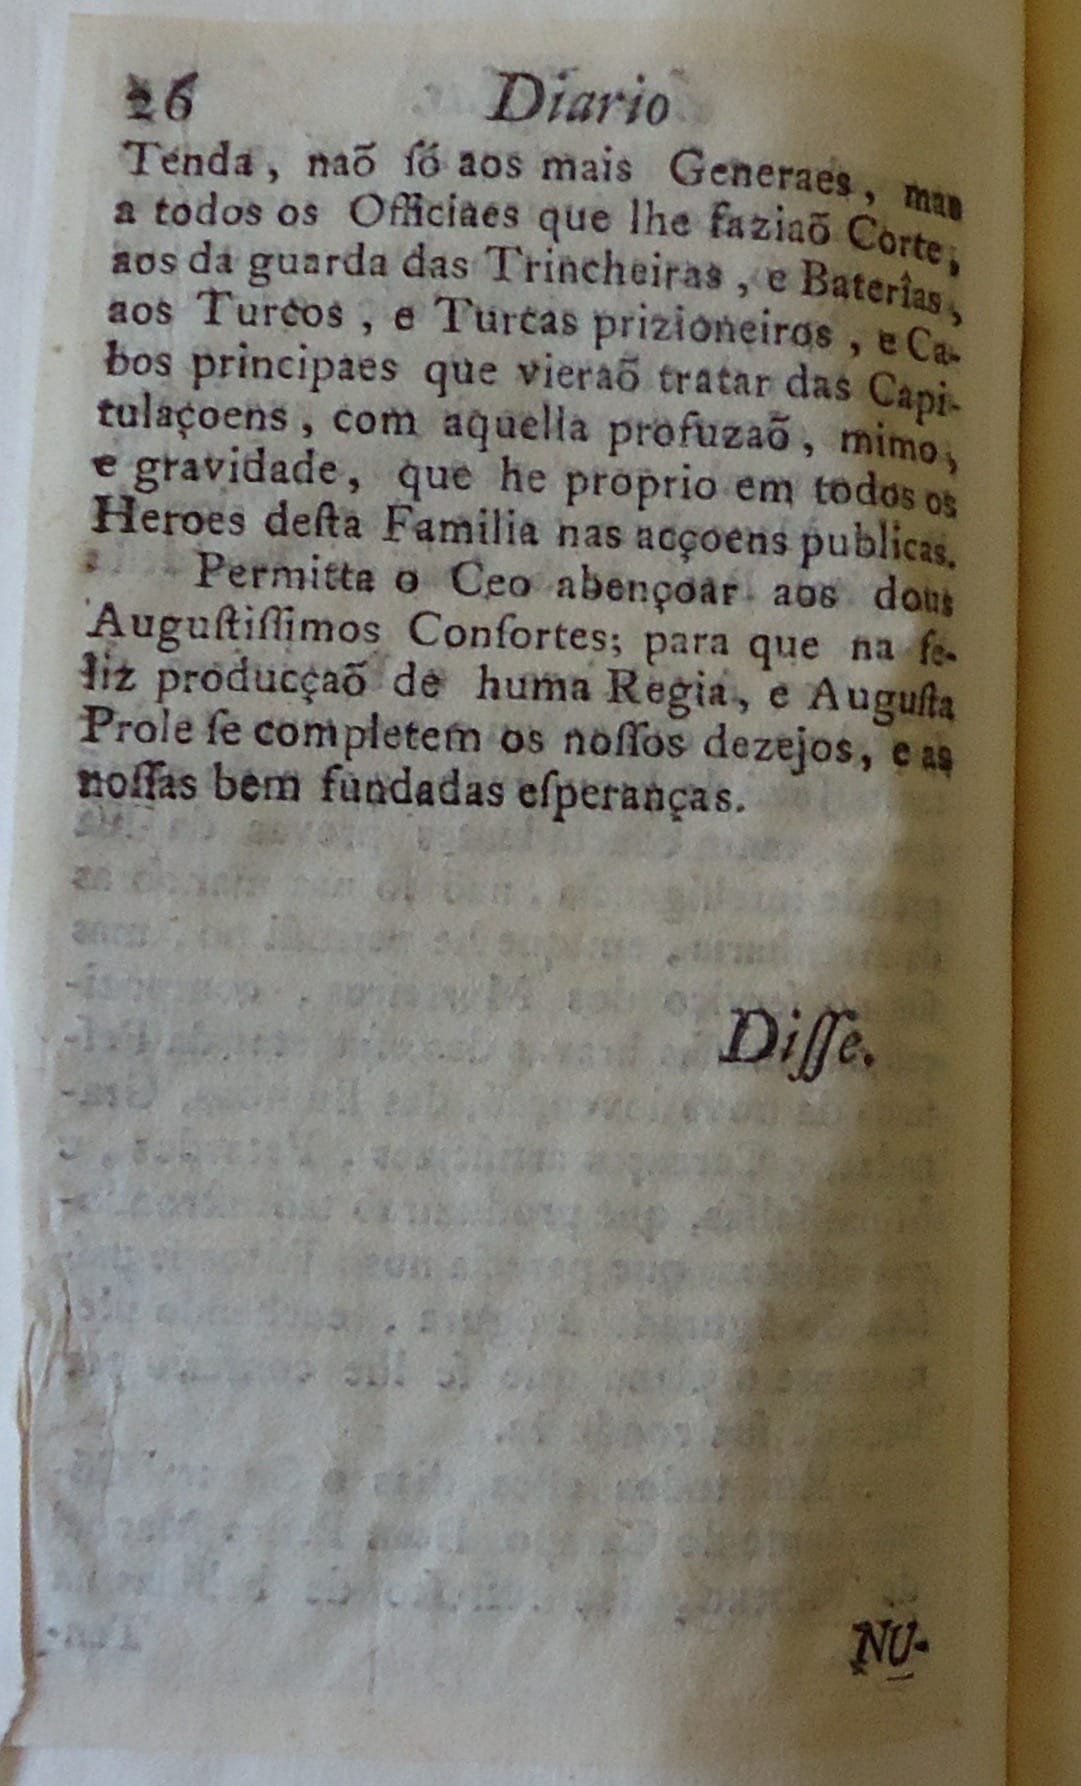 26 Diario
Tenda, naõ ſó aos mais Generaes, mas
a todos os Officiaes que lhe faziaõ Corte,
aos da guarda das Trincheiras, e Baterîas,
aos Turcos, e Turcas prizioneiros, e Ca-
bos principaes que vieraõ tratar das Capi-
tulaçoens, com aquella profuzaõ, mimo,
e gravidade, que he proprio em todos os
Heroes deſta Familia nas acçoens publicas.
Permitta o Ceo abençoar aos dous
Auguſtiſſimos Conſortes; para que na fe-
liz producçaõ de huma Regia, e Auguſta
Prole ſe completem os noſſos dezejos, e as
noſſas bem fundadas eſperanças.
Diſſe.
NU-